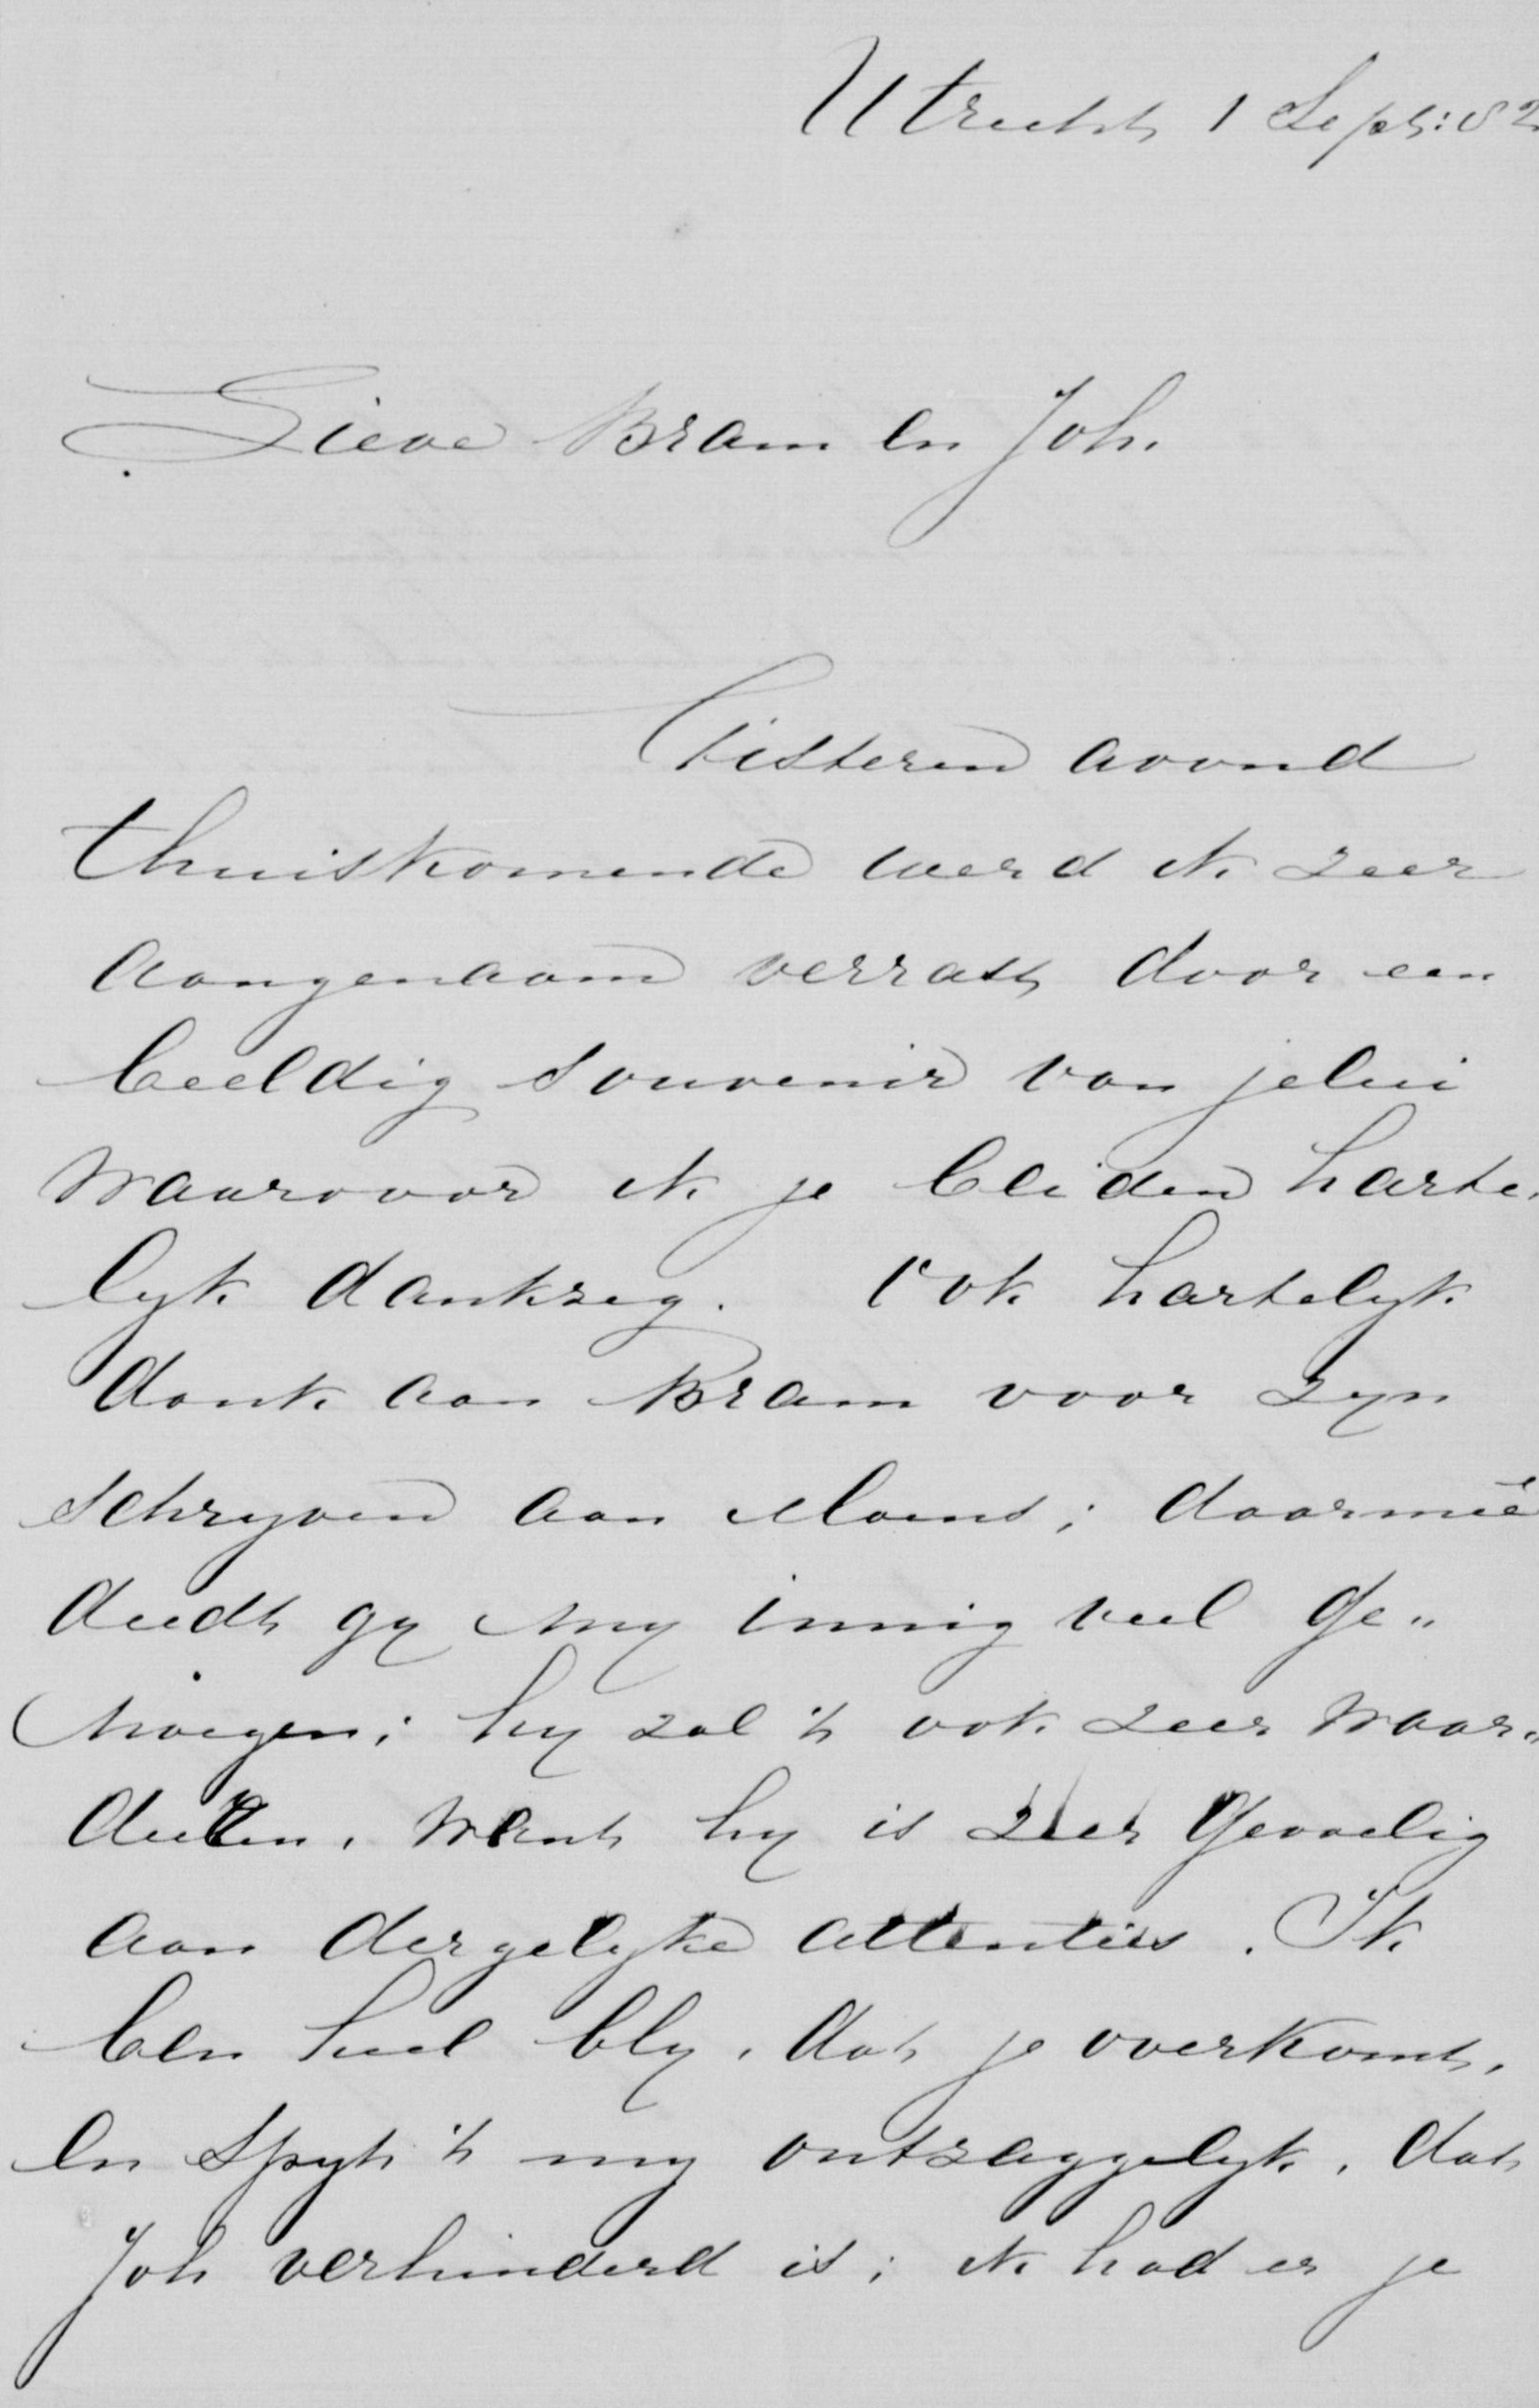 Utrecht 1 Sept: 82
Lieve Bram en Joh.
Gisteren avond
thuiskomende werd ik zeer
aangenaam verrast door een
beeldig souvenir van jelui
waarvoor ik je beiden harte-
lyk dankzeg. Ook hartelyk
dank aan Bram voor zyn
schryven aan Moens; daarmeê
deedt gy my innig veel ge„
noegen; hy zal 't ook zeer waar„
deeren, want hy is zeer gevoelig
aan dergelyke attenties. Ik
ben heel bly, dat je overkomt,
en spyt 't my ontzaggelyk, dat
Joh verhinderd is; ik had er je